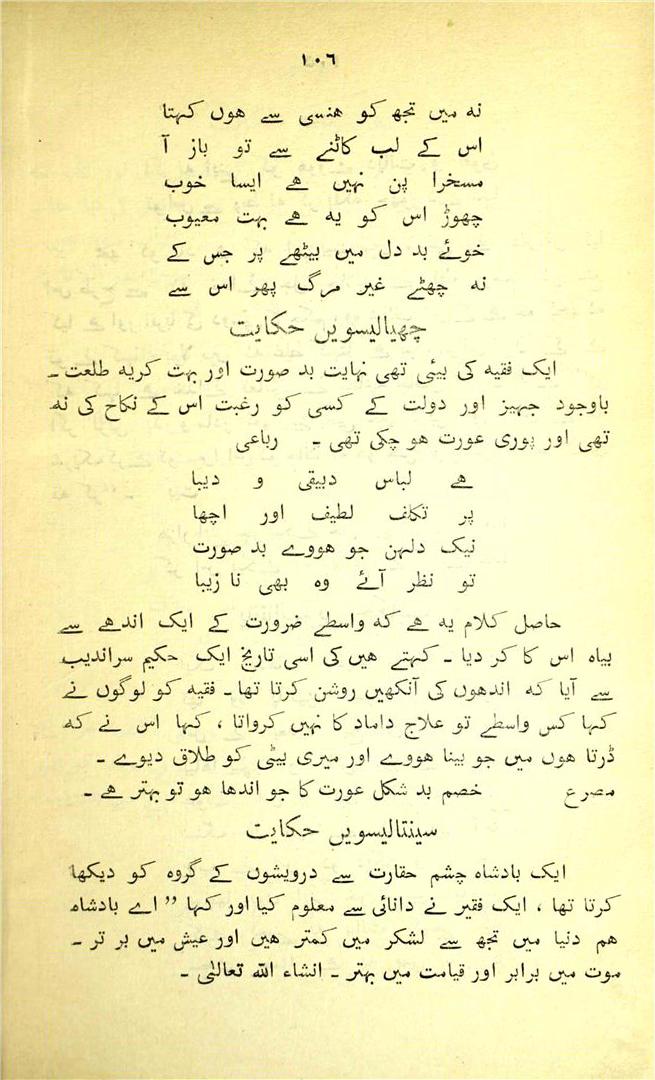 ۱۰٦
نه میں تجھ کو هنسی سے هوں کہتا
اس کے لب کاٹنے سے تو باز آ
مسخرا پن نہیں هے ایسا خوب
چھوڑ اس کو یه هے بہت معیوب
خوئے بد دل میں بیٹھے پر جس کے
نه چھٹے غیر مرگ پھر اس سے
چھیالیسویں حکایت
ایک فقیه کی بیٹی تھی نہایت بد صورت اور بہت کریه طلعت ۔
باوجود جہیز اور دولت کے کسی کو رغبت اس کے نکاح کی نه
تھی اور پوری عورت هو چکی تھی ۔ رباعی
هے لباس دبیقی و دیبا
پر تکلف لطیف اور اچھا
نیک دلہن جو هووے بد صورت
تو نظر آئے وه بھی نا زیبا
حاصل کلام یه هے که واسطے ضرورت کے ایک اندهے سے
بیاه اس کا کر دیا ۔ کہتے هیں کی اسی تاریخ ایک حکیم سراندیب
سے آیا که اندهوں کی آنکھیں روشن کرتا تھا ۔ فقیه کو لوگوں نے
کہا کس واسطے تو علاج داماد کا نہیں کرواتا ، کہا اس نے که
ڈرتا هوں میں جو بینا هووے اور میری بیٹی کو طلاق دیوے ۔
مصرع خصم بد شکل عورت کا جو اندها هو تو بہتر هے ۔
سینتالیسویں حکایت
ایک بادشاه چشم حقارت سے درویشوں کے گروه کو دیکھا
کرتا تھا ، ایک فقیر نے دانائی سے معلوم کیا اور کہا ” اے بادشاه
هم دنیا میں تجھ سے لشکر میں کمتر هیں اور عیش میں بر تر ۔
موت میں برابر اور قیامت میں بہتر ۔ انشاء الله تعالیٰ ۔